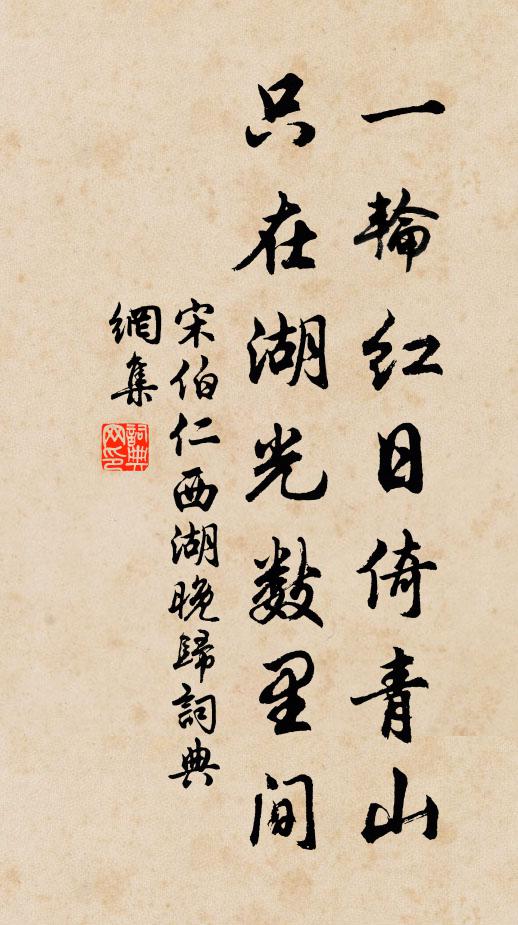 一輪紅日倚青山
只在湖光數里間
宋伯仁西湖晚歸詞典
網集
詞典網印